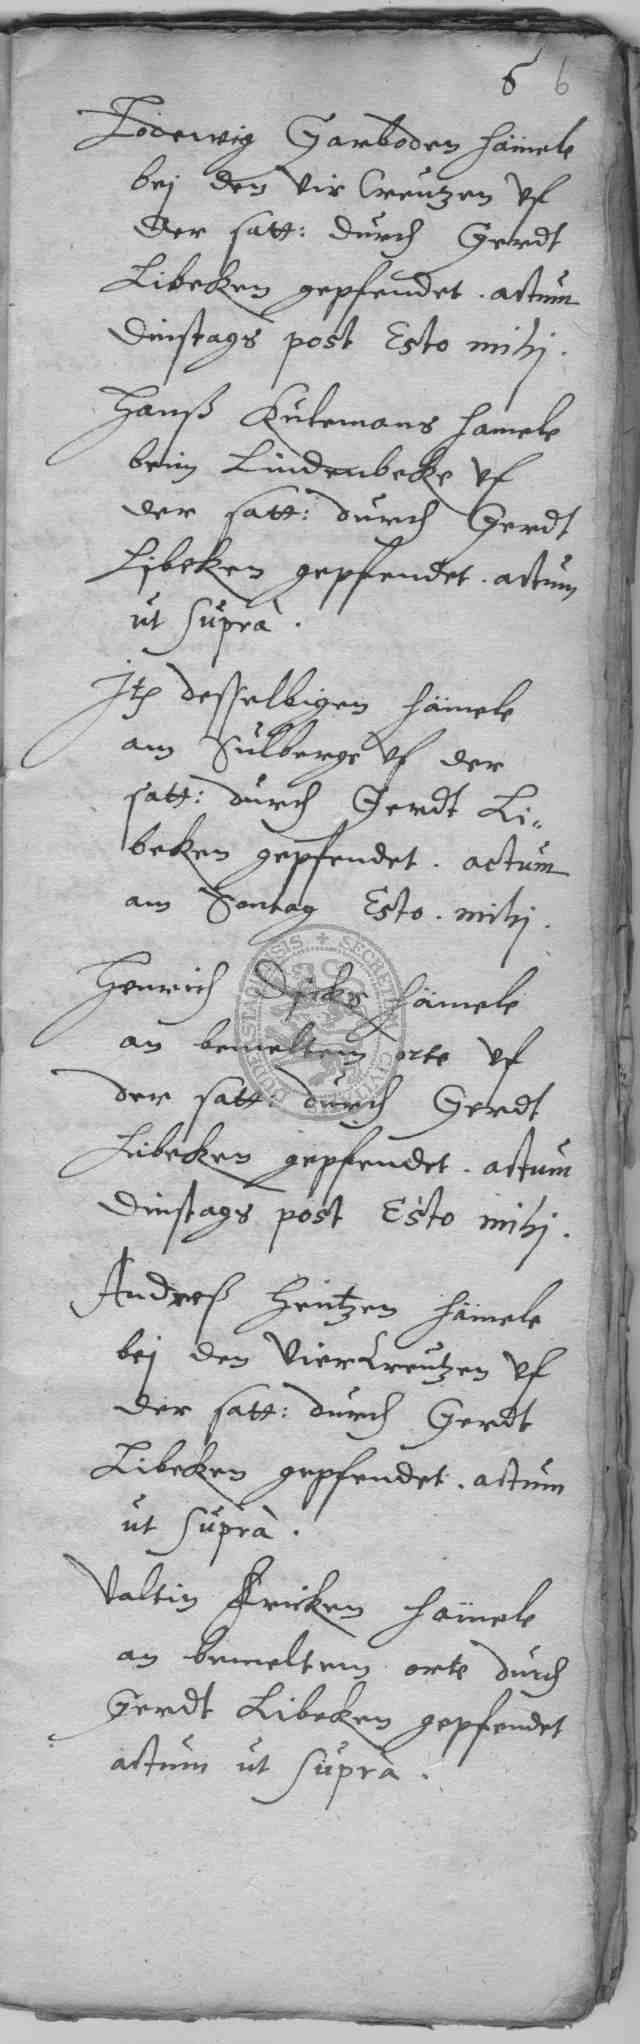 6 6
Lodewig Garboden hämele
bej den vir Creutzen vf
der satt: durch Gerdt
Libeken gepfendet. actum
dinstags post Esto mihj.
Hanß Kulemans hamele
beim Lindenbeke vf
der satt: durch Gerdt
Libeken gepfendet. actum
ut suprà.
Jtē desselbigen hämele
am Sulberge vf der
satt: durch Gerdt Li-
beken gepfendet. actum
am Sontag Esto. mihj.
Henrich hämele
an bemeltem orte vf
der satt: durch Gerdt
Libeken gepfendet. actum
dinstags post Esto mihj.
Andreß Heutzen hämele
bej den Vier Creutzen vf
der satt: durch Gerdt
Libeken gepfendet. actum
ut suprà.
Valtin Fricken hämele
an bemeltem orte durch
Gerdt Libeken gepfendet
actum ut suprà.
SECRETUM CIVITATIS DUDERSTADENSIS